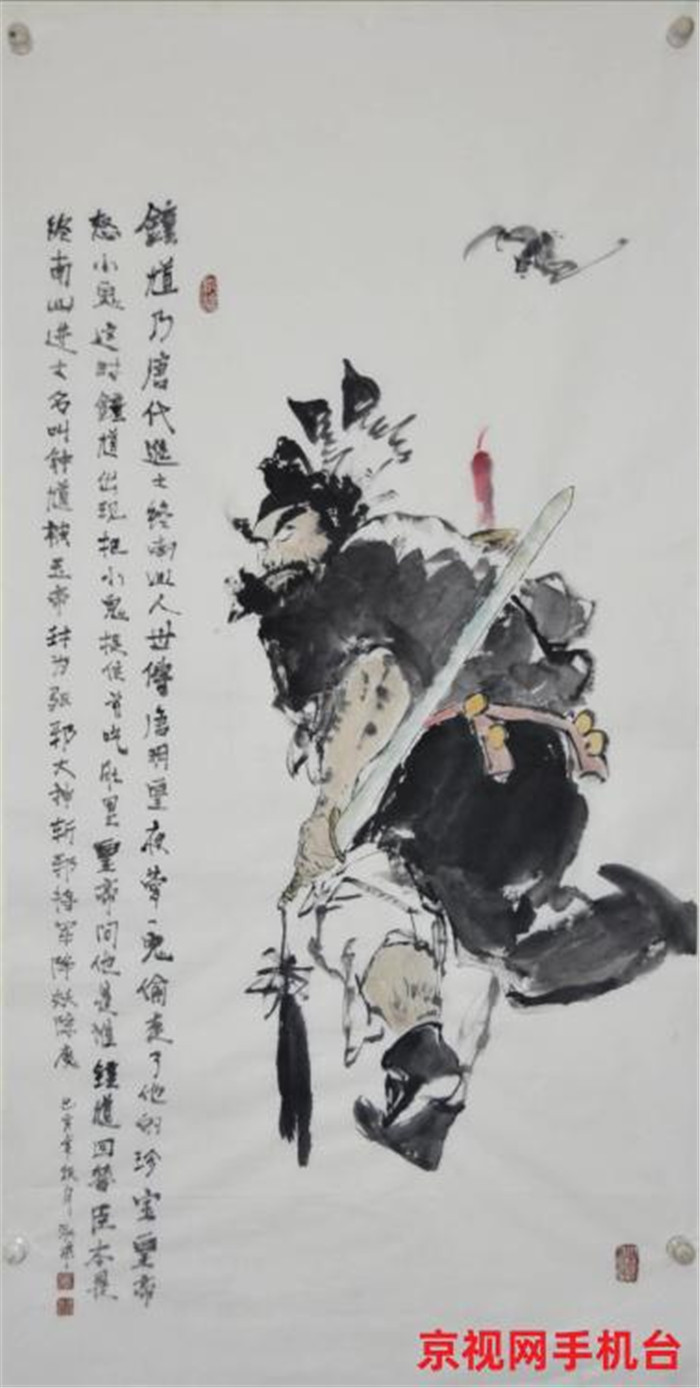 鐘馗乃唐代進士终南山人世傳唐明皇夜夢一鬼偷走了他的珍宝皇帝
怒小鬼這时鐘馗出现把小鬼捉住首吃肚里皇帝问他是谁鐘馗回答臣本是
终南山进士名叫钟馗被玉帝封为驱邪大神斩邪将军降妖除魔
己亥年
京视网手机台